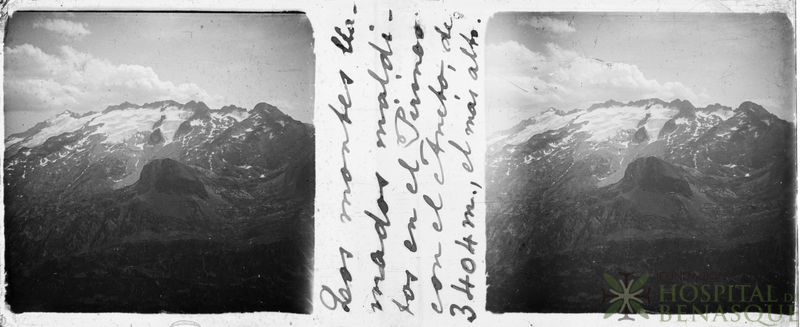 Los montes lla-
mados maldi-
tos en el Pirineo
con el Aneto, de
3404 m., el más alto.
HOSPITAL D
BENASQUE